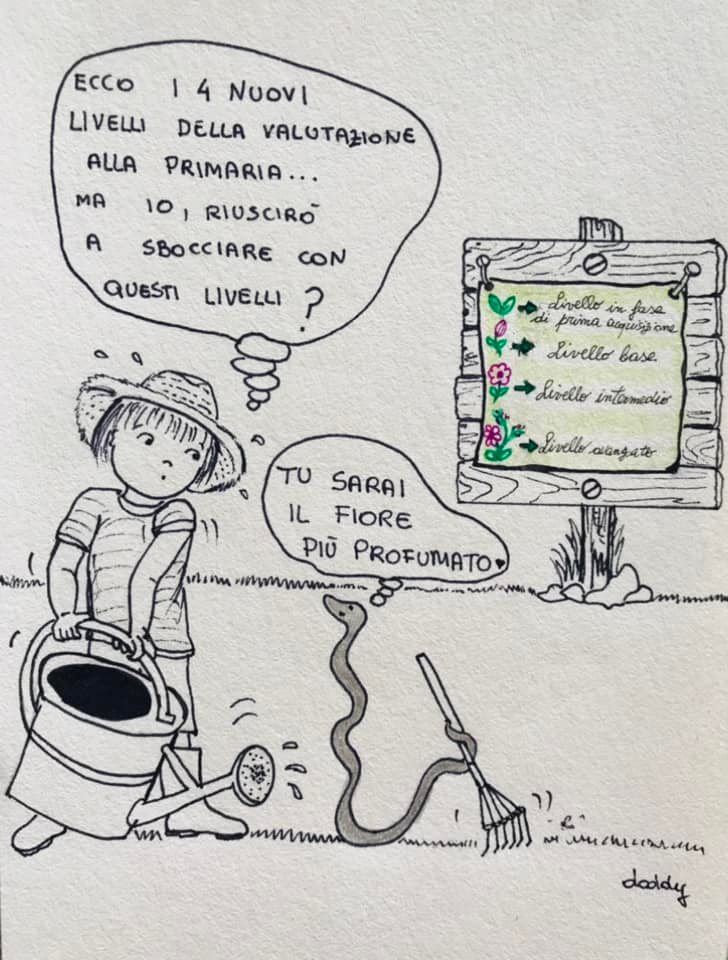 ECCO I 4 NUOVI
LIVELLI DELLA VALUTAZIONE
ALLA PRIMARIA...
MA IO, RIUSCIRÒ
A SBOCCIARE CON
QUESTI LIVELLI ?
Livello in fase
di prima acquisizione
Livello base
Livello intermedio
Livello avanzato
TU SARAI
IL FIORE
PIÙ PROFUMATO
doddy